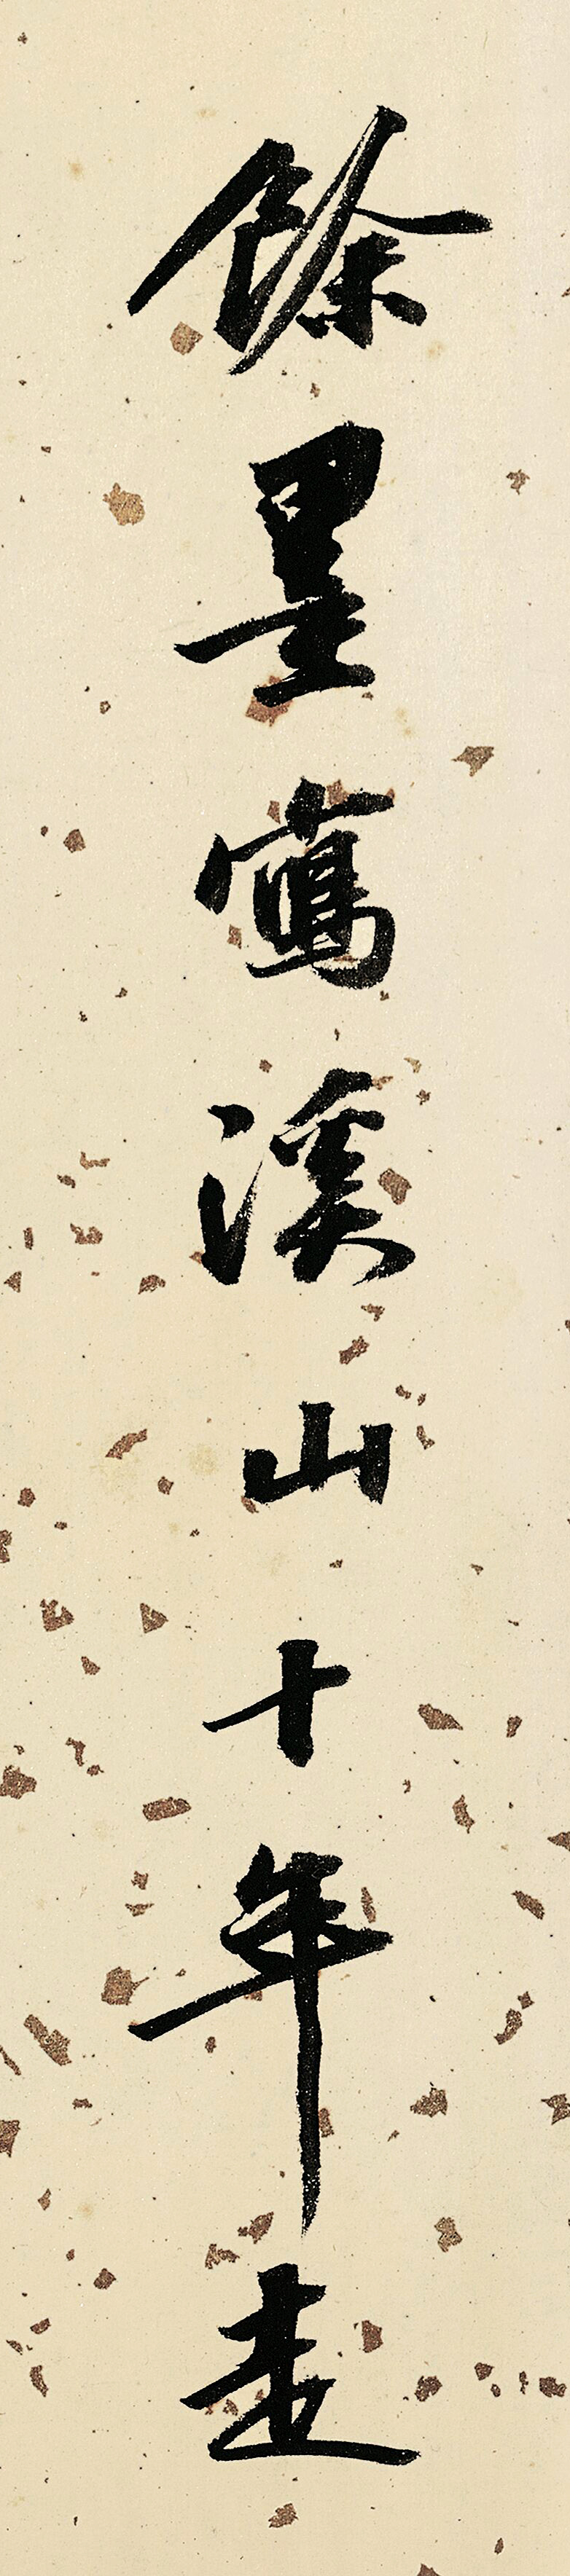 餘墨寫溪山十年走